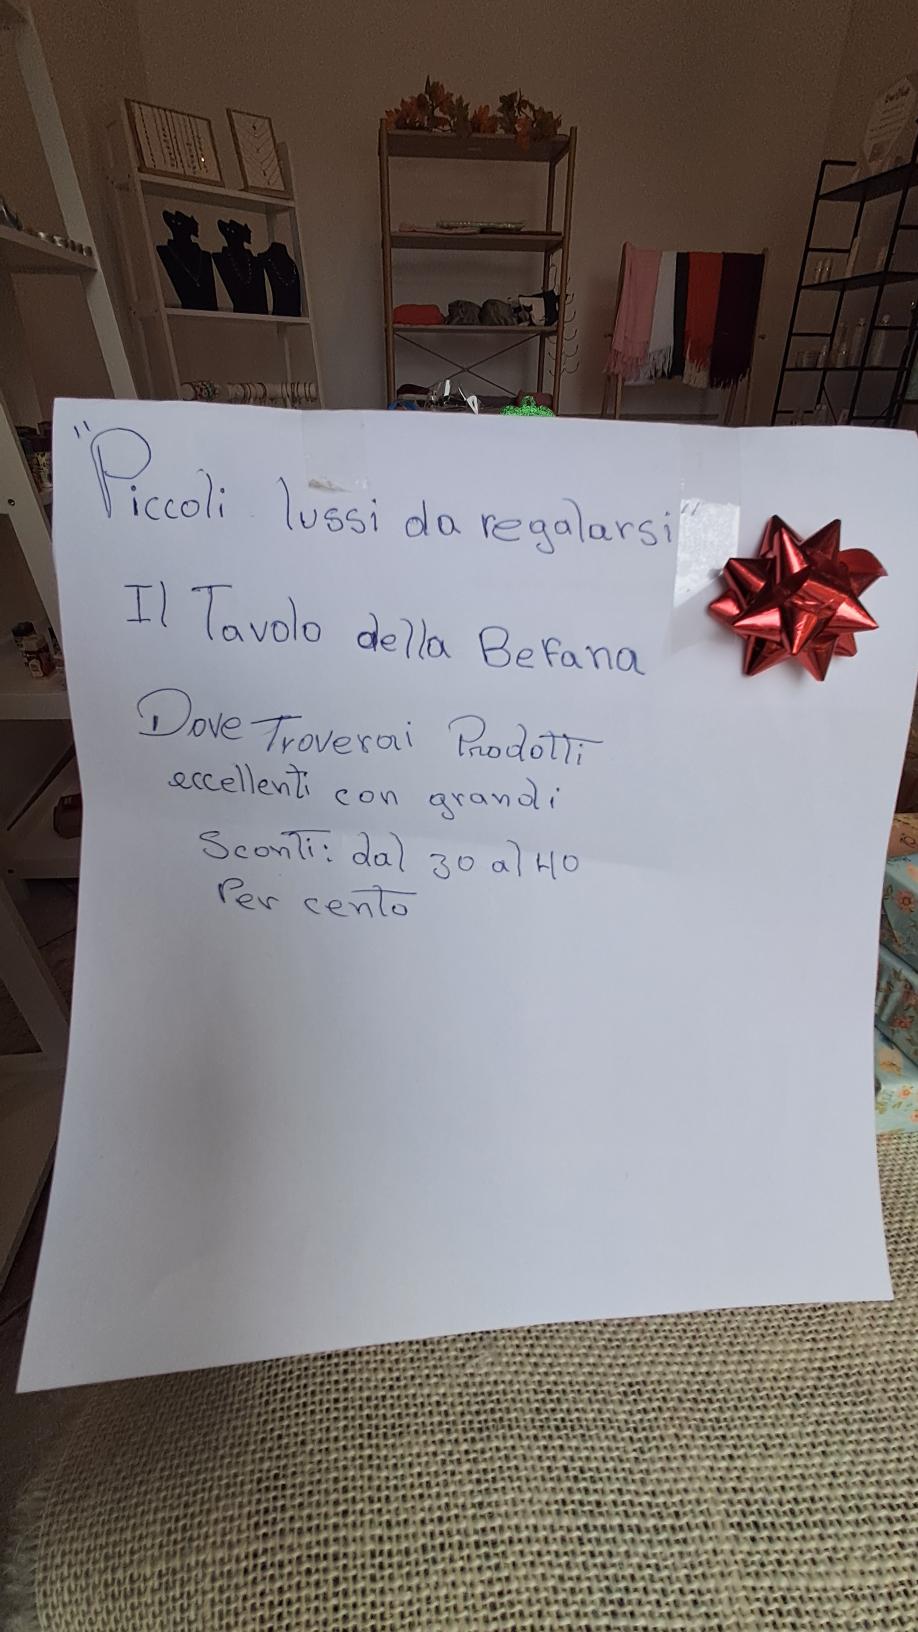 "Piccoli lussi da regalarsi"
Il Tavolo della Befana
Dove Troverai Prodotti
eccellenti con grandi
Sconti: dal 30 al 40
Per cento